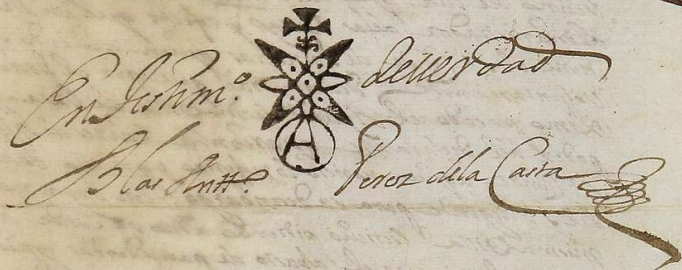 En testim.º de verdad
A
Blas Antt.º Perez de la Casta